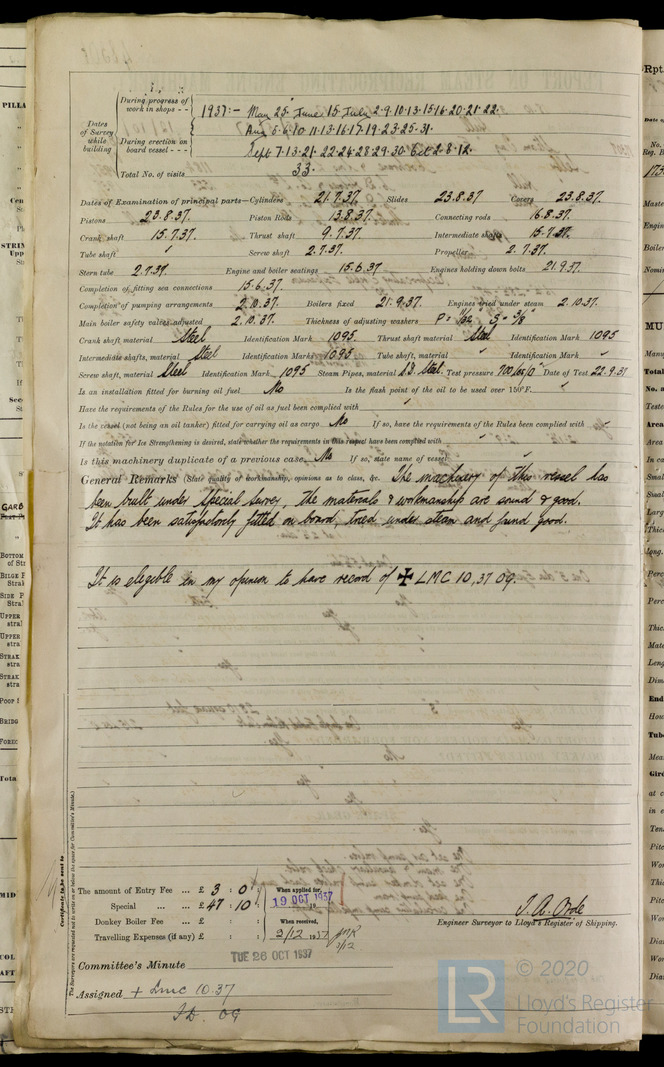 During progress of work in shops - - 1937:- May 25 June 15 July 2.9.10.13.15.16.20.21.22.
Aug 5.6.10.11.13.16.17.19.23.25.31.
Dates of Survey while building
During erection on board vessel - - - Sept 7.13.21.22.24.28.29.30. Oct 2.8.12.
Total No. of visits 33.
Dates of Examination of principal parts—Cylinders 21.7.37. Slides 23.8.37 Covers 23.8.37.
Pistons 20.8.37. Piston Rods 13.8.37. Connecting rods 16.8.37.
Crank shaft 15.7.37. Thrust shaft 9.7.37. Intermediate shafts 15.7.37.
Tube shaft Screw shaft 2.7.37. Propeller 2.7.37.
Stern tube 2.7.37. Engine and boiler seatings 15.6.37 Engines holding down bolts 21.9.37.
Completion of fitting sea connections 15.6.37.
Completion of pumping arrangements 2.10.37. Boilers fixed 21.9.37. Engines tried under steam 2.10.37.
Main boiler safety valves adjusted 2.10.37. Thickness of adjusting washers
Crank shaft material Steel Identification Mark 1095. Thrust shaft material Steel Identification Mark 1095
Intermediate shafts, material Steel Identification Marks 1095 Tube shaft, material Identification Mark
Screw shaft, material Steel Identification Mark 1095 Steam Pipes, material S.D. Steel. Test pressure Date of Test 22.9.37
Is an installation fitted for burning oil fuel No Is the flash point of the oil to be used over 150°F.
Have the requirements of the Rules for the use of oil as fuel been complied with
Is the vessel (not being an oil tanker) fitted for carrying oil as cargo No If so, have the requirements of the Rules been complied with
If the notation for Ice Strengthening is desired, state whether the requirements in this respect have been complied with
Is this machinery duplicate of a previous case No If so, state name of vessel
General Remarks (State quality of workmanship, opinions as to class, &c. The machinery of this vessel has
been built under Special Survey, the materials & workmanship are sound & good.
It has been satisfactorily fitted on board, tried under steam and found good.
It is eligible in my opinion to have record of ✠ LMC 10,37 OG.
Certificate to be sent to
(The Surveyors are requested not to write on or below the space for Committee's Minute.)
The amount of Entry Fee ... £ 3 : 0 : When applied for,
Special ... ... £ 47 : 10 : 19 OCT 1937
Donkey Boiler Fee ... £ : : When received,
Travelling Expenses (if any) £ : : 2/12 1937
J. A. Orde
Engineer Surveyor to Lloyd's Register of Shipping.
TUE 26 OCT 1937
Committee's Minute
Assigned + Lmc 10.37
OG
LR © 2020
Lloyd's Register
Foundation